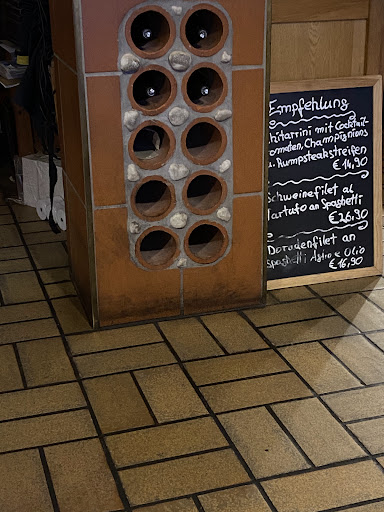 Empfehlung
Chitarrini mit Cocktail-
tomaten, Champignions
u. Rumpsteakstreifen
€ 14,90
Schweinefilet al
Tartufo an Spaghetti
€ 26,90
Doradenfilet an
Spaghetti Aglio e Olio
€ 16,90